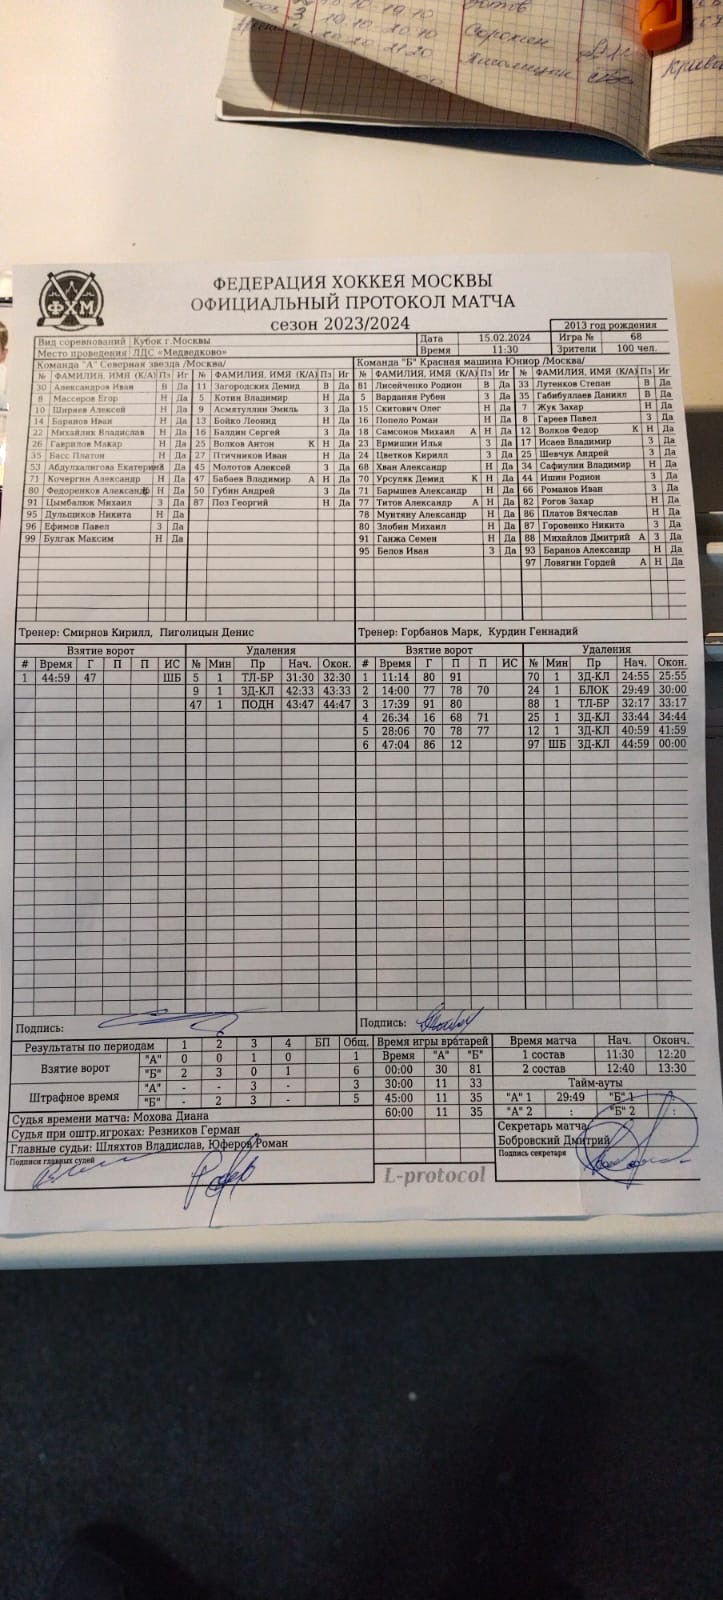 10.10 - 19.10
3 19.10 - 20.10
20.20 - 21.20
Сорокин
Пиголицын
ФХМ
ФЕДЕРАЦИЯ ХОККЕЯ МОСКВЫ
ОФИЦИАЛЬНЫЙ ПРОТОКОЛ МАТЧА
сезон 2023/2024
2013 год рождения
Вид соревнований Кубок г.Москвы Дата 15.02.2024 Игра № 68
Место проведения ЛДС «Медведково» Время 11:30 Зрители 100 чел.
Команда "А" Северная звезда /Москва/ Команда "Б" Красная машина Юниор /Москва/
№ ФАМИЛИЯ, ИМЯ (К/А) Пз Иг № ФАМИЛИЯ, ИМЯ (К/А) Пз Иг № ФАМИЛИЯ, ИМЯ (К/А) Пз Иг № ФАМИЛИЯ, ИМЯ (К/А) Пз Иг
30 Александров Иван В Да 11 Загородских Демид В Да 81 Лисейченко Родион В Да 33 Лутенков Степан В Да
8 Массеров Егор Н Да 5 Котин Владимир Н Да 5 Варданян Рубен З Да 35 Габибуллаев Даниял В Да
10 Ширяев Алексей Н Да 9 Асмятуллин Эмиль З Да 15 Скитович Олег Н Да 7 Жук Захар Н Да
14 Баранов Иван Н Да 13 Бойко Леонид Н Да 16 Попело Роман Н Да 8 Гареев Павел З Да
22 Михайлик Владислав Н Да 16 Балдин Сергей З Да 18 Самсонов Михаил А Н Да 12 Волков Федор К Н Да
26 Гаврилов Макар Н Да 25 Волков Антон К Н Да 23 Ермишин Илья З Да 17 Исаев Владимир З Да
35 Басс Платон Н Да 27 Птичников Иван Н Да 24 Цветков Кирилл З Да 25 Шевчук Андрей З Да
53 Абдулхалигова Екатерина З Да 45 Молотов Алексей З Да 68 Хван Александр Н Да 34 Сафиулин Владимир Н Да
71 Кочергин Александр Н Да 47 Бабаев Владимир А Н Да 70 Урсуляк Демид К Н Да 44 Ишин Родион З Да
80 Федоренков Александр Н Да 50 Губин Андрей З Да 71 Барышев Александр Н Да 66 Романов Иван З Да
91 Цымбалюк Михаил З Да 87 Поз Георгий Н Да 77 Титов Александр А Н Да 82 Рогов Захар Н Да
95 Дульщиков Никита Н Да 78 Мунтяну Александр Н Да 86 Платов Вячеслав Н Да
96 Ефимов Павел З Да 80 Злобин Михаил Н Да 87 Горовенко Никита З Да
99 Булгак Максим Н Да 91 Ганжа Семен Н Да 88 Михайлов Дмитрий А З Да
95 Белов Иван З Да 93 Баранов Александр Н Да
97 Ловягин Гордей А Н Да
Тренер: Смирнов Кирилл, Пиголицын Денис Тренер: Горбанов Марк, Курдин Геннадий
Взятие ворот Удаления Взятие ворот Удаления
# Время Г П П ИС № Мин Пр Нач. Окон. # Время Г П П ИС № Мин Пр Нач. Окон.
1 44:59 47 ШБ 5 1 ТЛ-БР 31:30 32:30 1 11:14 80 91 70 1 ЗД-КЛ 24:55 25:55
9 1 ЗД-КЛ 42:33 43:33 2 14:00 77 78 70 24 1 БЛОК 29:49 30:00
47 1 ПОДН 43:47 44:47 3 17:39 91 80 88 1 ТЛ-БР 32:17 33:17
4 26:34 16 68 71 25 1 ЗД-КЛ 33:44 34:44
5 28:06 70 78 77 12 1 ЗД-КЛ 40:59 41:59
6 47:04 86 12 97 ШБ ЗД-КЛ 44:59 00:00
Подпись: Подпись:
Результаты по периодам 1 2 3 4 БП Общ. Время игры вратарей Время матча Нач. Оконч.
Взятие ворот "А" 0 0 1 0 1 Время "А" "Б" 1 состав 11:30 12:20
"Б" 2 3 0 1 6 00:00 30 81 2 состав 12:40 13:30
Штрафное время "А" - - 3 - 3 30:00 11 33 Тайм-ауты
"Б" - 2 3 - 5 45:00 11 35 "А" 1 29:49 "Б" 1 :
60:00 11 35 "А" 2 : "Б" 2 :
Судья времени матча: Мохова Диана
Судья при оштр.игроках: Резников Герман
Главные судьи: Шляхтов Владислав, Юферов Роман
Подписи главных судей
Секретарь матча
Бобровский Дмитрий
Подпись секретаря
L-protocol